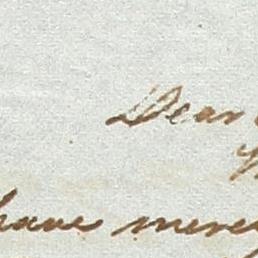 Dear
have mercy